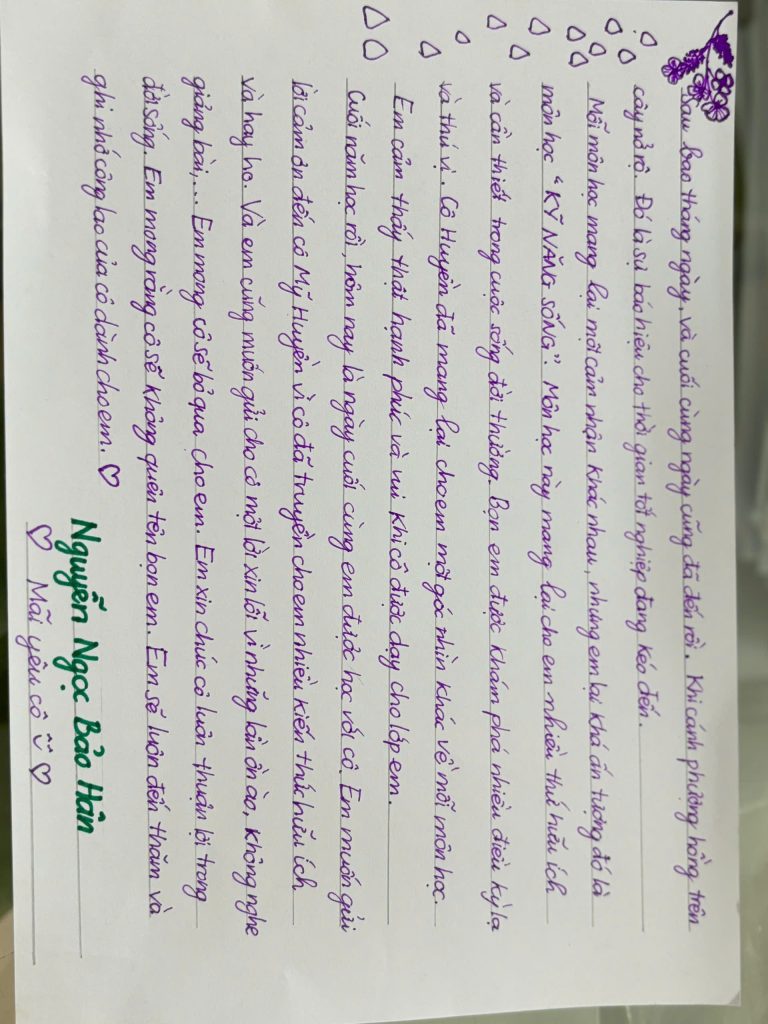 Sau bao tháng ngày, và cuối cùng ngày cũng đã đến rồi. Khi cánh phượng hồng trên
cây nở rộ. Đó là sự báo hiệu cho thời gian tốt nghiệp đang kéo đến.
Mỗi môn học mang lại một cảm nhận khác nhau, nhưng em lại khá ấn tượng đó là
môn học "KỸ NĂNG SỐNG". Môn học này mang lại cho em nhiều thứ hữu ích
và cần thiết trong cuộc sống đời thường. Bọn em được khám phá nhiều điều kỳ lạ
và thú vị. Cô Huyền đã mang lại cho em một góc nhìn khác về mỗi môn học.
Em cảm thấy thật hạnh phúc và vui khi cô được dạy cho lớp em.
Cuối năm học rồi, hôm nay là ngày cuối cùng em được học với cô. Em muốn gửi
lời cảm ơn đến cô Mỹ Huyền vì cô đã truyền cho em nhiều kiến thức hữu ích
và hay ho. Và em cũng muốn gửi cho cô một lời xin lỗi vì những lần ồn ào, không nghe
giảng bài,... Em mong cô sẽ bỏ qua cho em. Em xin chúc cô luôn thuận lợi trong
đời sống. Em mong rằng cô sẽ không quên tên bọn em. Em sẽ luôn đến thăm và
ghi nhớ công lao của cô dành cho em. ♡
Nguyễn Ngọc Bảo Hân
♡ Mãi yêu cô ♡